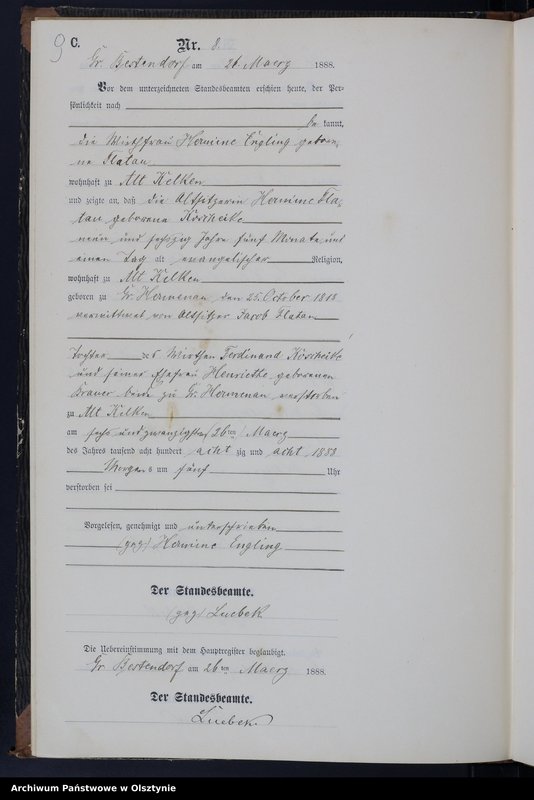 9
C.
Nr. 8.
Gr. Bestendorf am 26. Maerz 1888.
Vor dem unterzeichneten Standesbeamten erschien heute, der Per-
sönlichkeit nach
be kannt,
die Wirthsfrau Hermine Engling gebore-
ne Flatau
wohnhaft zu Alt Kelken
und zeigte an, daß die Altsitzerin Hermine Fla-
tau geborene Köscheike
neun und sechszig Jahre fünf Monate und
einen Tag alt evangelischer Religion,
wohnhaft zu Alt Kelken
geboren zu Gr. Hermenau den 25. October 1818
verwittwet von Altsitzer Jacob Flatau
Tochter des Wirthen Ferdinand Köscheike
und seiner Ehefrau Henriette geborenen
beide zu Gr. Hermenau verstorben
zu Alt Kelken
am sechs und zwanzigsten 26ten Maerz
des Jahres tausend acht hundert acht zig und acht 1888
Morgens um fünf Uhr
verstorben sei
Vorgelesen, genehmigt und unterschrieben
(gez) Hermine Engling
Der Standesbeamte.
(gez) Luebek
Die Uebereinstimmung mit dem Hauptregister beglaubigt.
Gr. Bestendorf am 26ten Maerz 1888.
Der Standesbeamte.
Luebek
Archiwum Państwowe w Olsztynie